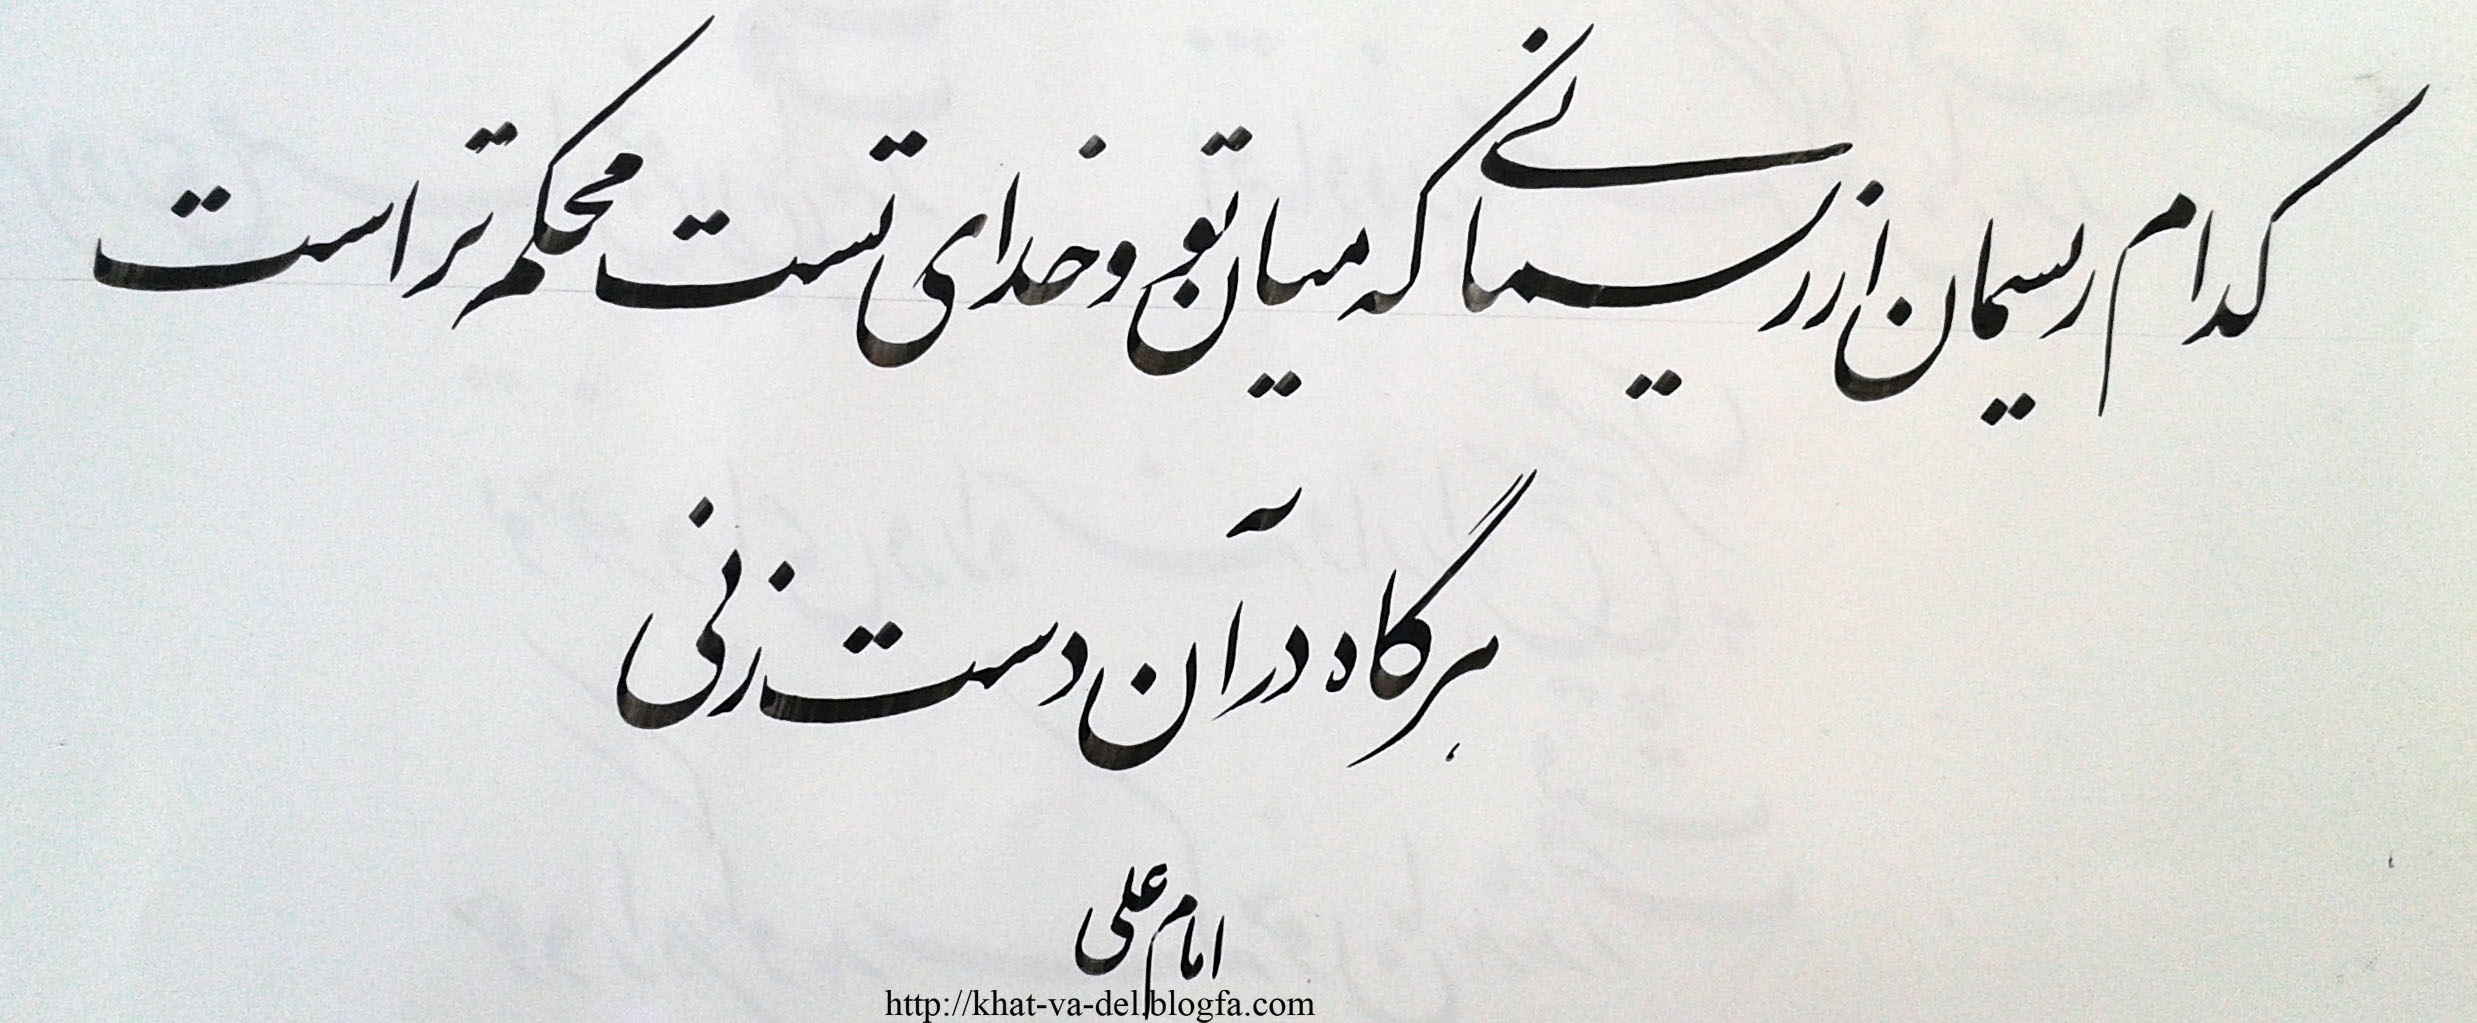 کدام ریسمان از ریسمانی که میان تو و خدای تست محکم تر است
هرگاه در آن دست زنی
امام علی
http://khat-va-del.blogfa.com